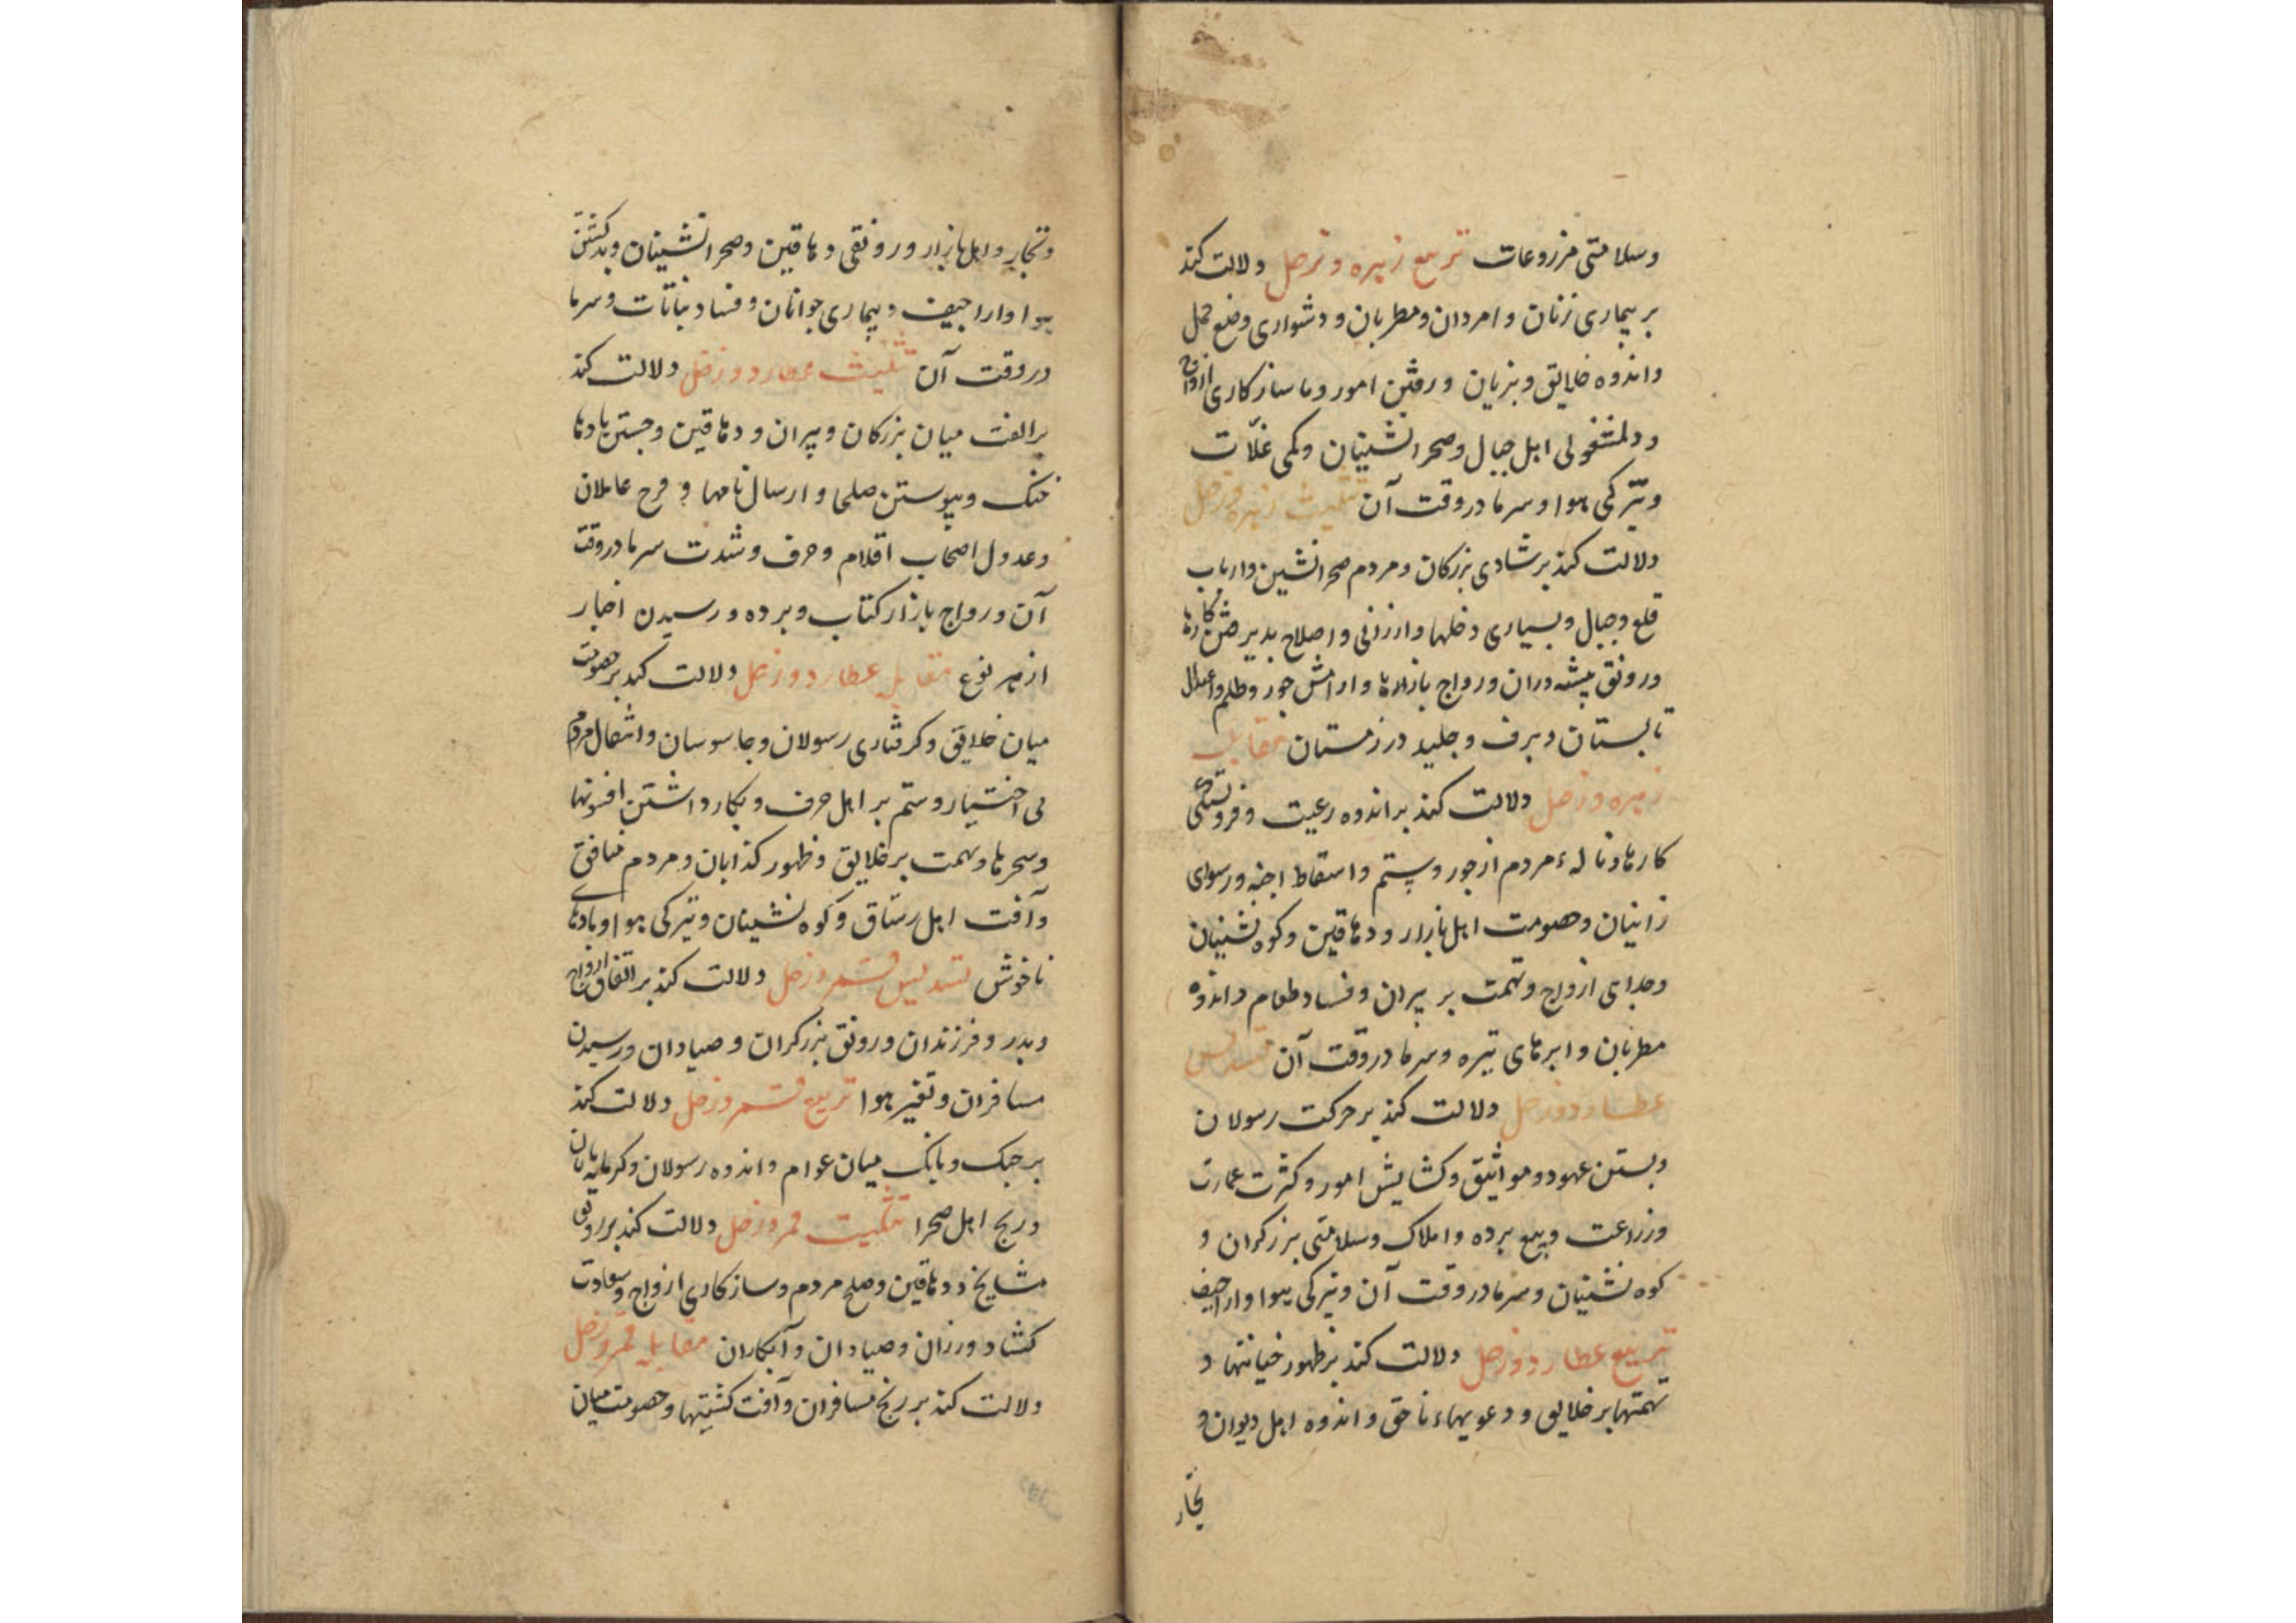 وسلامتی مزروعات تربیع زهره و زحل دلالت کند
بر بیماری زنان و امردان و مطربان و دشواری وضع حمل
و اندوه خلایق و بزیان و رفتن امور و ناسازکاری ازواج
و دلمشغولی اهل جبال و صحرانشینان و کمی غلّات
و تیرکی هوا و سرما در وقت آن تثلیث زهره و زحل
دلالت کند بر شادی بزرکان و مردم صحرانشین و ارباب
قلع و جبال و بسیاری دخلها و ارزانی و اصلاح پذیرفتن کارها
و رونق پیشه وران و رواج بازارها و ارامش جور و ظلم و اعتدال
تابستان و برف و جلید در زمستان مقابله
زهره و زحل دلالت کند بر اندوه رعیت و فروبستکی
کارها و ناله مردم از جور و ستم و اسقاط اجنه و رسوای
زانیان و خصومت اهل بازار و دهاقین و کوه نشینان
و جدای ازواج و تهمت بر پیران و فساد طعام و اندوه
مطربان و ابرهای تیره و سرما در وقت آن تسدیس
عطارد و زحل دلالت کند بر حرکت رسولان
و بستن عهود و مواثیق و کشایش امور و کثرت عمارت
و زراعت و بیع برده و املاک و سلامتی برزکران و
کوه نشینان و سرما در وقت آن و تیرکی هوا و اراجیف
تربیع عطارد و زحل دلالت کند بر ظهور خیانتها و
تهمتها بر خلایق و دعویهاء ناحق و اندوه اهل دیوان و
تجار
و تجار و اهل بازار و رونقی دهاقین و صحرانشینان و بد کشتن
هوا و اراجیف و بیماری جوانان و فساد نباتات و سرما
در وقت آن تثلیث عطارد و زحل دلالت کند
بر الفت میان بزرکان و پیران و دهاقین و جستن بادها
خنک و پیوستن صلحا و ارسال نامها و فرح عاملان
و عدول اصحاب اقلام و حرف و شدت سرما در وقت
آن و رواج بازار کتاب و برده و رسیدن اخبار
از هر نوع مقابله عطارد و زحل دلالت کند بر خصومت
میان خلایق و کرفتاری رسولان و جاسوسان و انتقال مردم
بی اختیار و ستم بر اهل حرف و بکار داشتن افسونها
و سحرها و تهمت بر خلایق و ظهور کذابان و مردم منافق
و آفت اهل رستاق و کوه نشینان و تیرکی هوا و بادهای
ناخوش تسدیس قمر و زحل دلالت کند بر اتفاق ازواج
و پدر و فرزندان و رونق برزکران و صیادان و رسیدن
مسافران و تغیر هوا تربیع قمر و زحل دلالت کند
بر جنک و بانک میان عوام و اندوه رسولان و کرمابه بانان
و رنج اهل صحرا تثلیث قمر و زحل دلالت کند بر رونق
مشایخ و دهاقین و صلح مردم و سازکاری ازواج و سعادت
کشاد ورزان و صیادان و آبکاران مقابله قمر و زحل
دلالت کند بر رنج مسافران و آفت کشتیها و خصومت میان